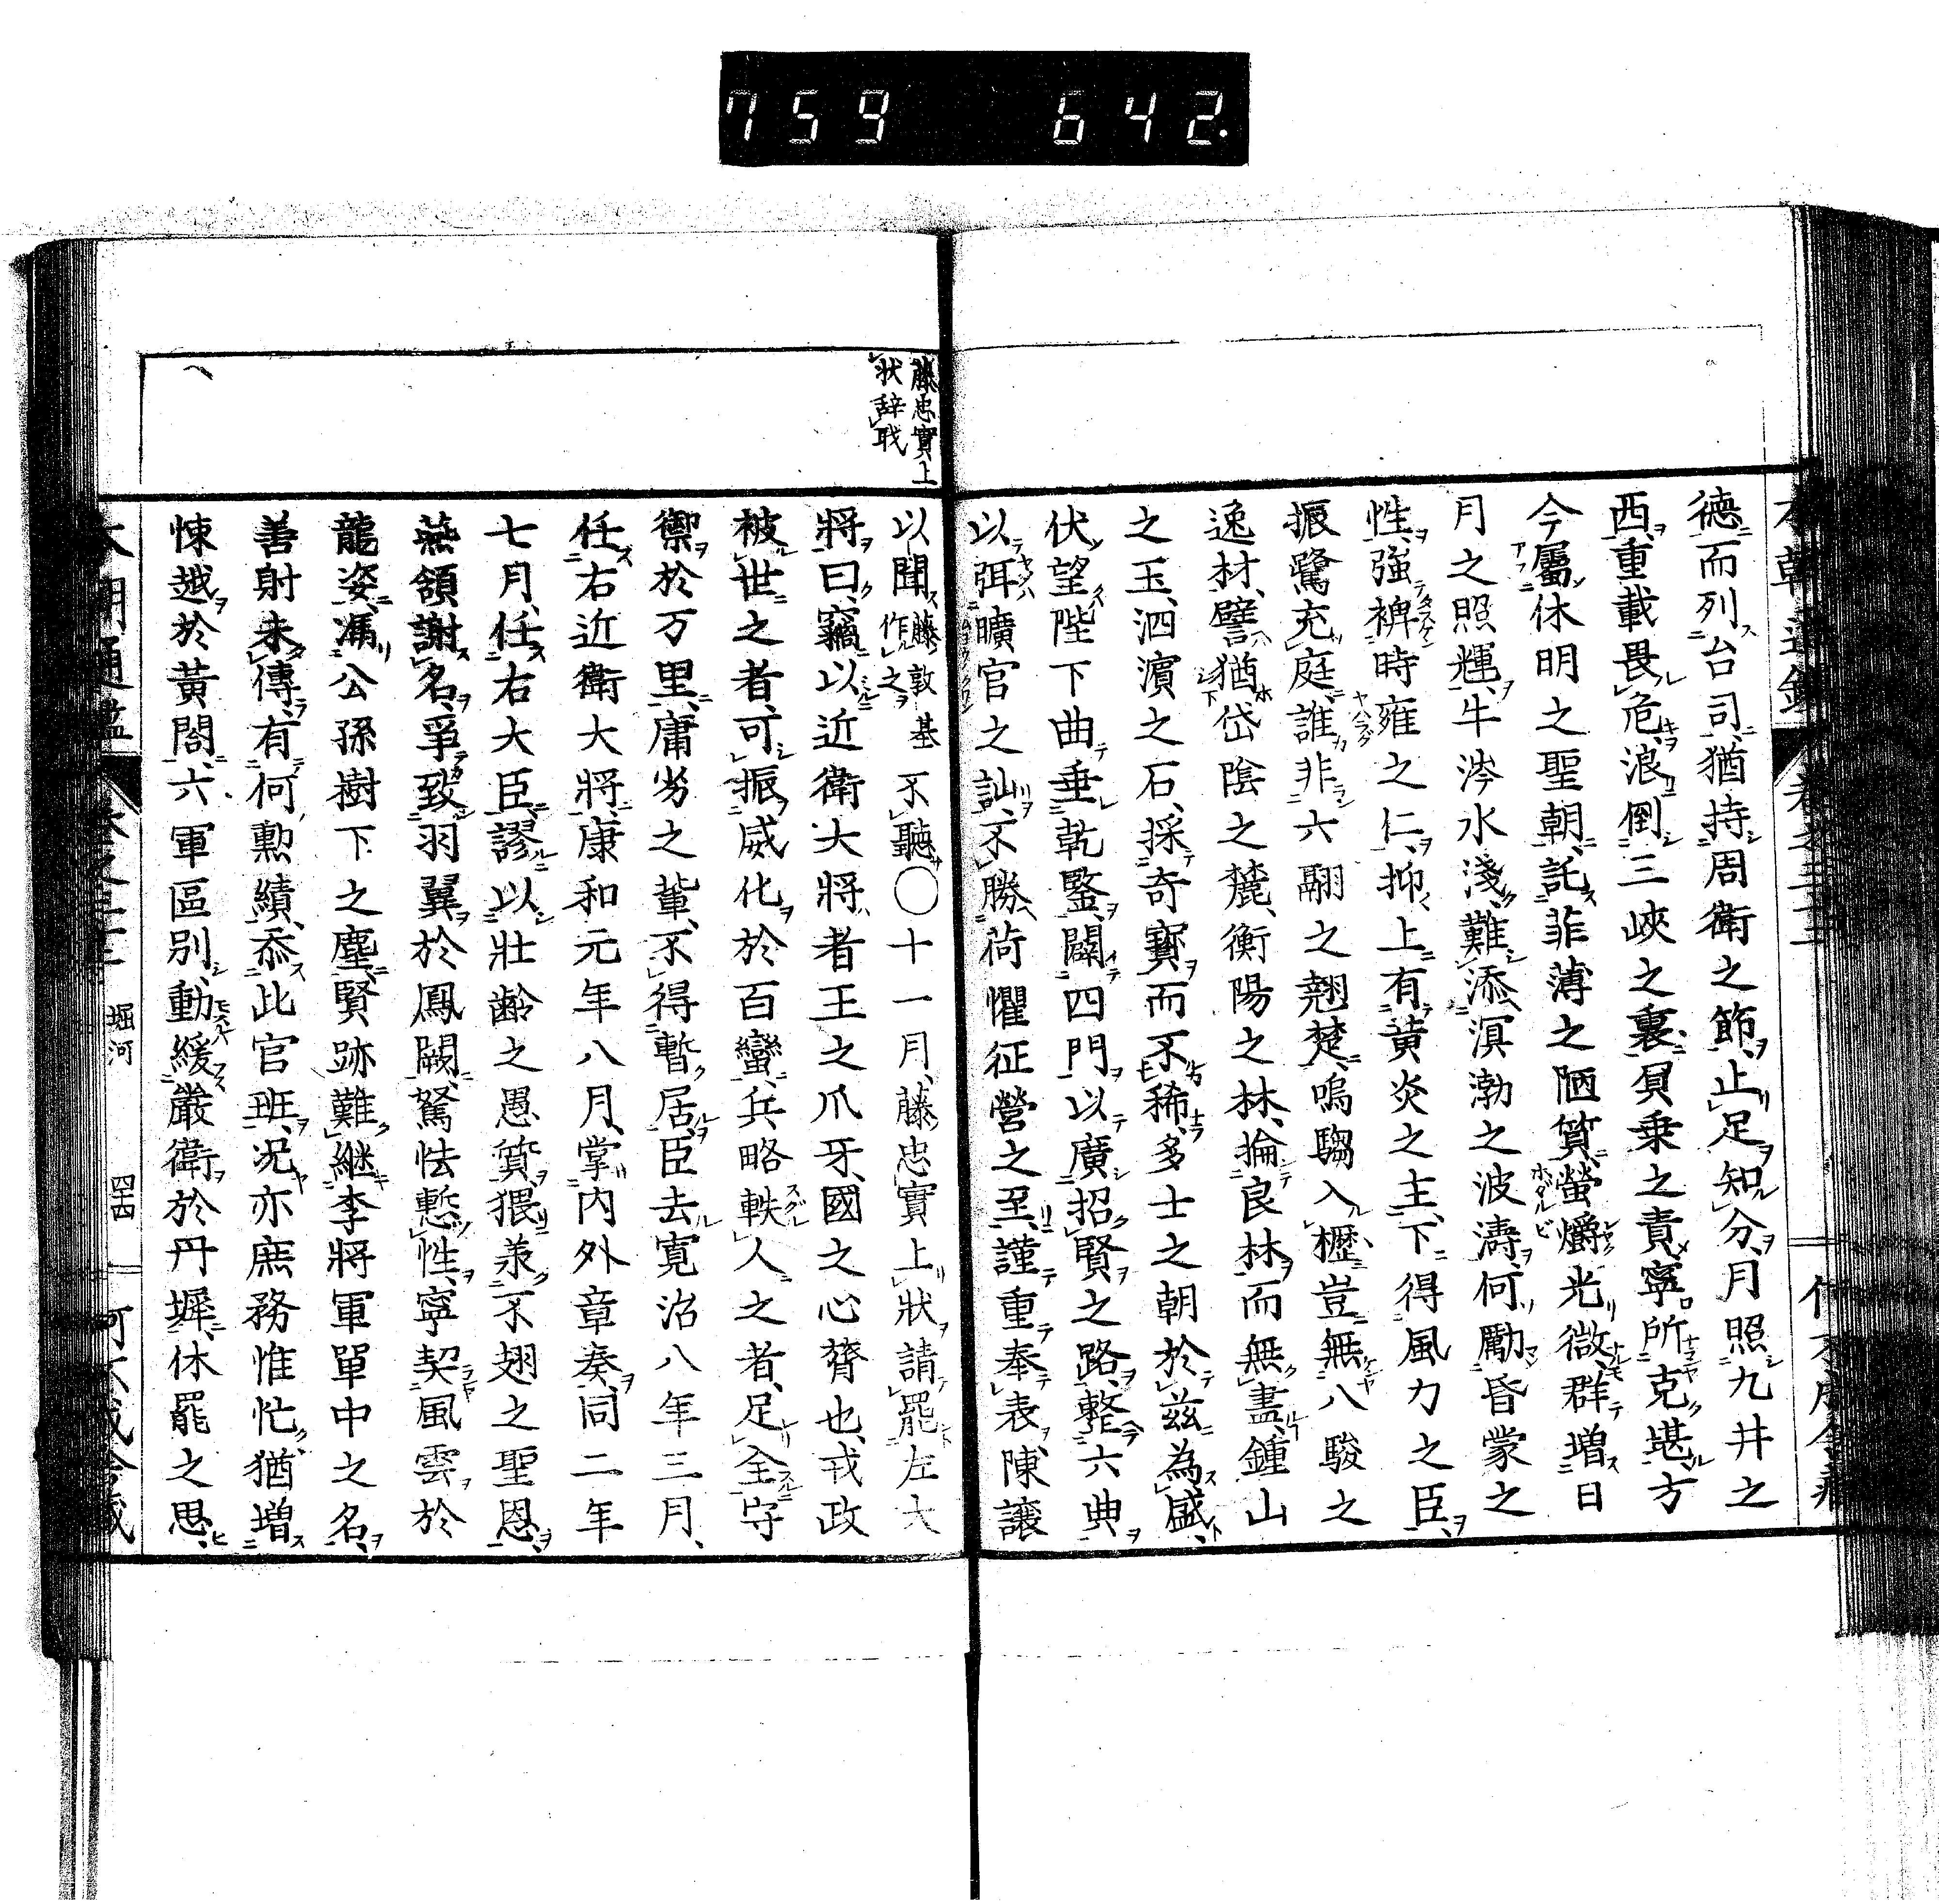 759 642.
德而列台司猶持周衛之節止足知分月照九井之
西重載畏危浪倒三峽之裏貝乗之責寧所克堪方
今屬休明之聖朝託菲薄之陋質螢爝光微群增日
月之照輝牛涔水淺難添溟渤之波濤何勵昏蒙之
性強裨時雍之仁抑上有黄炎之主下得風力之臣
振鷺充庭誰非六翮之翹楚鳴騶入櫪豈無八駿之
逸材譬猶岱陰之麓衡陽之林掄良林而無盡鍾山
之玉泗濵之石採奇寳而不稀多士之朝於兹為盛
伏望陛下曲垂乾鑒闢四門以廣招賢之路整六典
以弭曠官之訕不勝荷懼征營之至謹重奉表陳讓
藤忠實上
狀辞職
以聞藤敦基作之不聽○十一月藤忠實上狀請罷左大
將曰竊以近衛大將者王之爪牙國之心膂也戎政
被世之者可振威化於百蠻兵略軼人之者足全守
禦於万里庸劣之輩不得暫居臣去寛治八年三月
任右近衛大將康和元年八月掌內外章奏同二年
七月任右大臣謬以壯齡之愚質猥羕不翅之聖恩
燕頷謝名爭致羽翼於鳳闕駑怯慙性寧契風雲於
龍姿馮公孫樹下之塵賢跡難継李將軍單中之名
善射未傳有何勲績忝此官班況亦庶務惟忙猶增
悚越於黃閤六軍區別動緩嚴衛於丹墀休罷之思
堀河
四十四